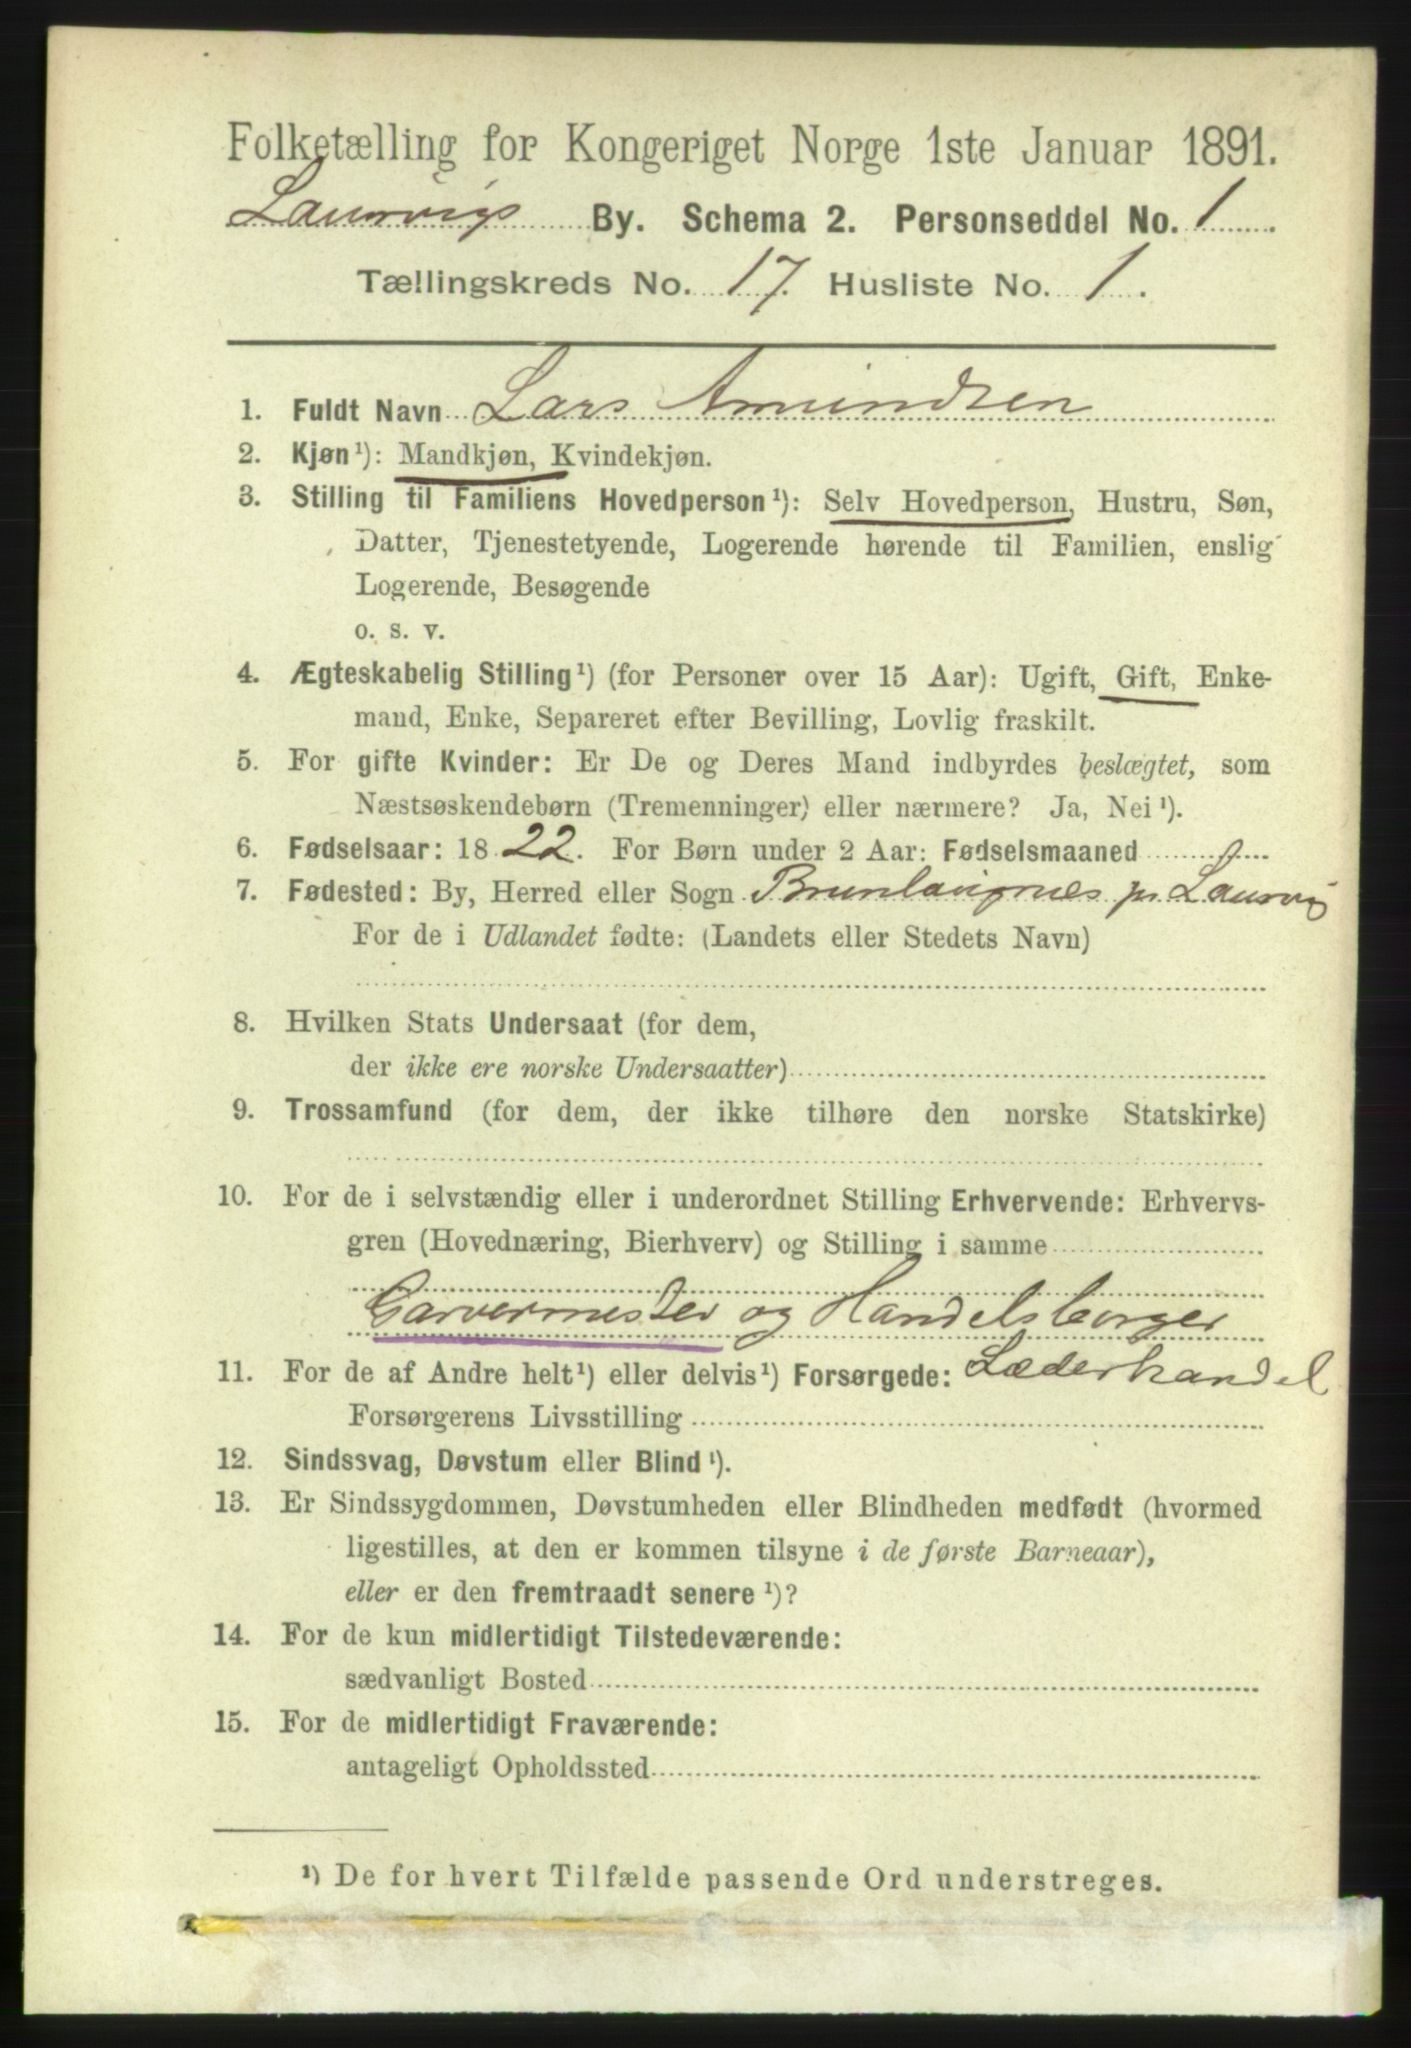 Folketælling for Kongeriget Norge 1ste Januar 1891.
Laurvigs By. Schema 2. Personseddel No. 1.
Tællingskreds No. 17. Husliste No. 1.
1. Fuldt Navn Lars Amundsen
2. Kjøn¹): Mandkjøn, Kvindekjøn.
3. Stilling til Familiens Hovedperson¹): Selv Hovedperson, Hustru, Søn,
Datter, Tjenestetyende, Logerende hørende til Familien, enslig
Logerende, Besøgende
o. s. v.
4. Ægteskabelig Stilling¹) (for Personer over 15 Aar): Ugift, Gift, Enke-
mand, Enke, Separeret efter Bevilling, Lovlig fraskilt.
5. For gifte Kvinder: Er De og Deres Mand indbyrdes beslægtet, som
Næstsøskendebørn (Tremenninger) eller nærmere? Ja, Nei¹).
6. Fødselsaar: 1822. For Børn under 2 Aar: Fødselsmaaned
7. Fødested: By, Herred eller Sogn Brunlaugnæs pr. Laurvig
For de i Udlandet fødte: (Landets eller Stedets Navn)
8. Hvilken Stats Undersaat (for dem,
der ikke ere norske Undersaatter)
9. Trossamfund (for dem, der ikke tilhøre den norske Statskirke)
10. For de i selvstændig eller i underordnet Stilling Erhvervende: Erhvervs-
gren (Hovednæring, Bierhverv) og Stilling i samme
Garvermester og Handelsborger
11. For de af Andre helt¹) eller delvis¹) Forsørgede: Læderhandel
Forsørgerens Livsstilling
12. Sindssvag, Døvstum eller Blind¹).
13. Er Sindssygdommen, Døvstumheden eller Blindheden medfødt (hvormed
ligestilles, at den er kommen tilsyne i de første Barneaar),
eller er den fremtraadt senere¹)?
14. For de kun midlertidigt Tilstedeværende:
sædvanligt Bosted
15. For de midlertidigt Fraværende:
antageligt Opholdssted
¹) De for hvert Tilfælde passende Ord understreges.